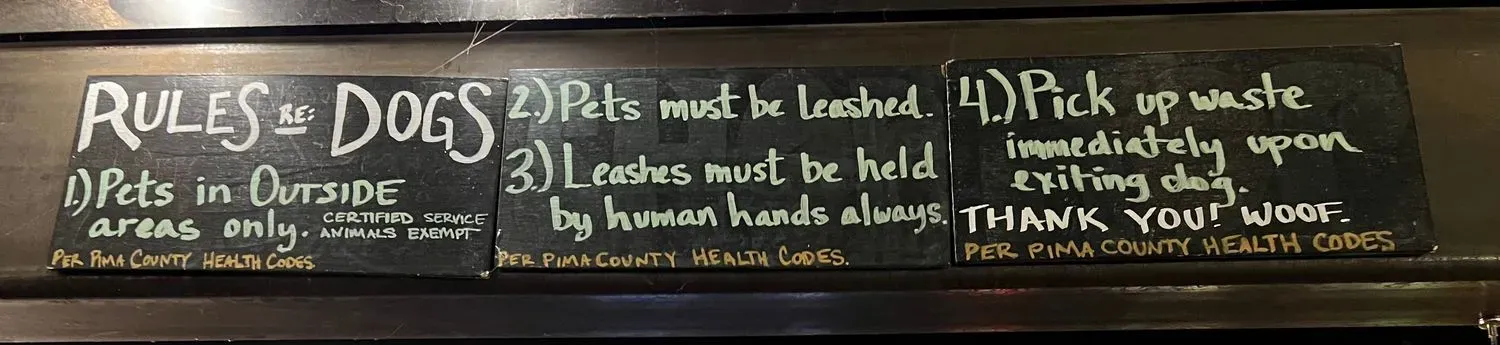 RULES RE: DOGS
1.) Pets in OUTSIDE
areas only. CERTIFIED SERVICE
ANIMALS EXEMPT
PER PIMA COUNTY HEALTH CODES
2.) Pets must be leashed.
3.) Leashes must be held
by human hands always.
PER PIMA COUNTY HEALTH CODES.
4.) Pick up waste
immediately upon
exiting dog.
THANK YOU! WOOF.
PER PIMA COUNTY HEALTH CODES